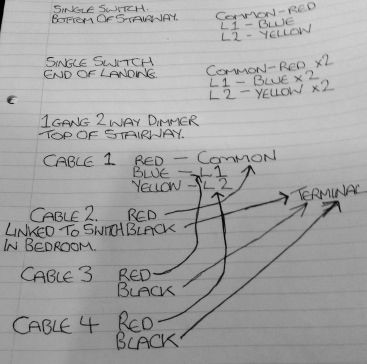 SINGLE SWITCH. COMMON-RED
BOTTOM OF STAIRWAY. L1-BLUE
L2-YELLOW
SINGLE SWITCH COMMON-RED x2
END OF LANDING. L1-BLUE x2
L2-YELLOW x2
1 GANG 2 WAY DIMMER
TOP OF STAIRWAY.
CABLE 1 RED - COMMON
BLUE - L1
YELLOW - L2
TERMINAL
CABLE 2. RED
LINKED TO SWITCH BLACK
IN BEDROOM.
CABLE 3 RED
BLACK
CABLE 4 RED
BLACK